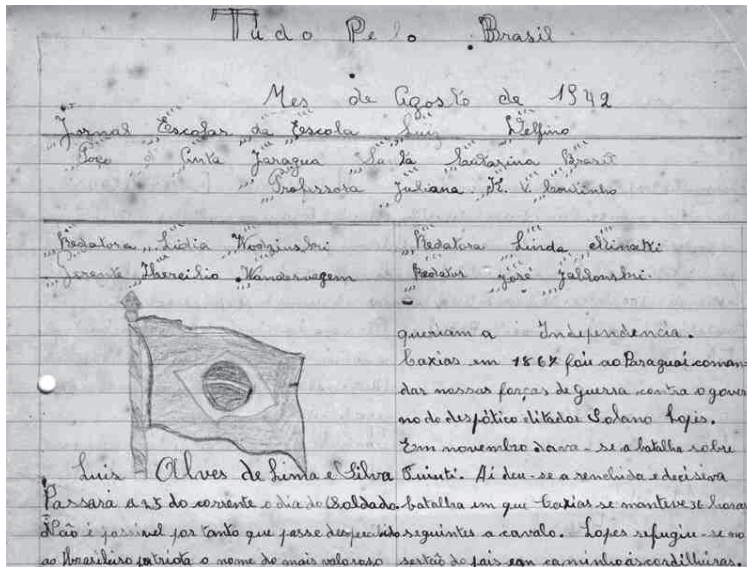 Tudo Pelo Brasil
Mes de Agosto de 1942
Jornal Escolar da Escola Luiz Delfino
Poço d' Anta Jaragua Sa ta Catarina Brasil
Professora Juliana K. V. Coutinho
Redatora Lidia Wodzinski
Gerente Hercilio Wandervegem
Luis Alves de Lima e Silva
Passará a 25 do corrente o dia do Soldado.
Não é possivel por tanto que passe despercebido
ao brasileiro patriota o nome do mais valoroso
Redatora Linda
Redator José Jablonski.
queriam a Independencia.
Caxias em 1867 foiu ao Paraguai coman-
dar nossas forças de Guerra contra o gover
no do despótico ditador Solano Lopis.
Em novembro dava-se a batalha sobre
Tuiuti. Ai deu-se a renchida e decisiva
batalha em que Caxias se manteve 3c horas
seguintes a cavalo. Lopes refugiu-se no
sertão do pais em caminho ás cordilheiras.